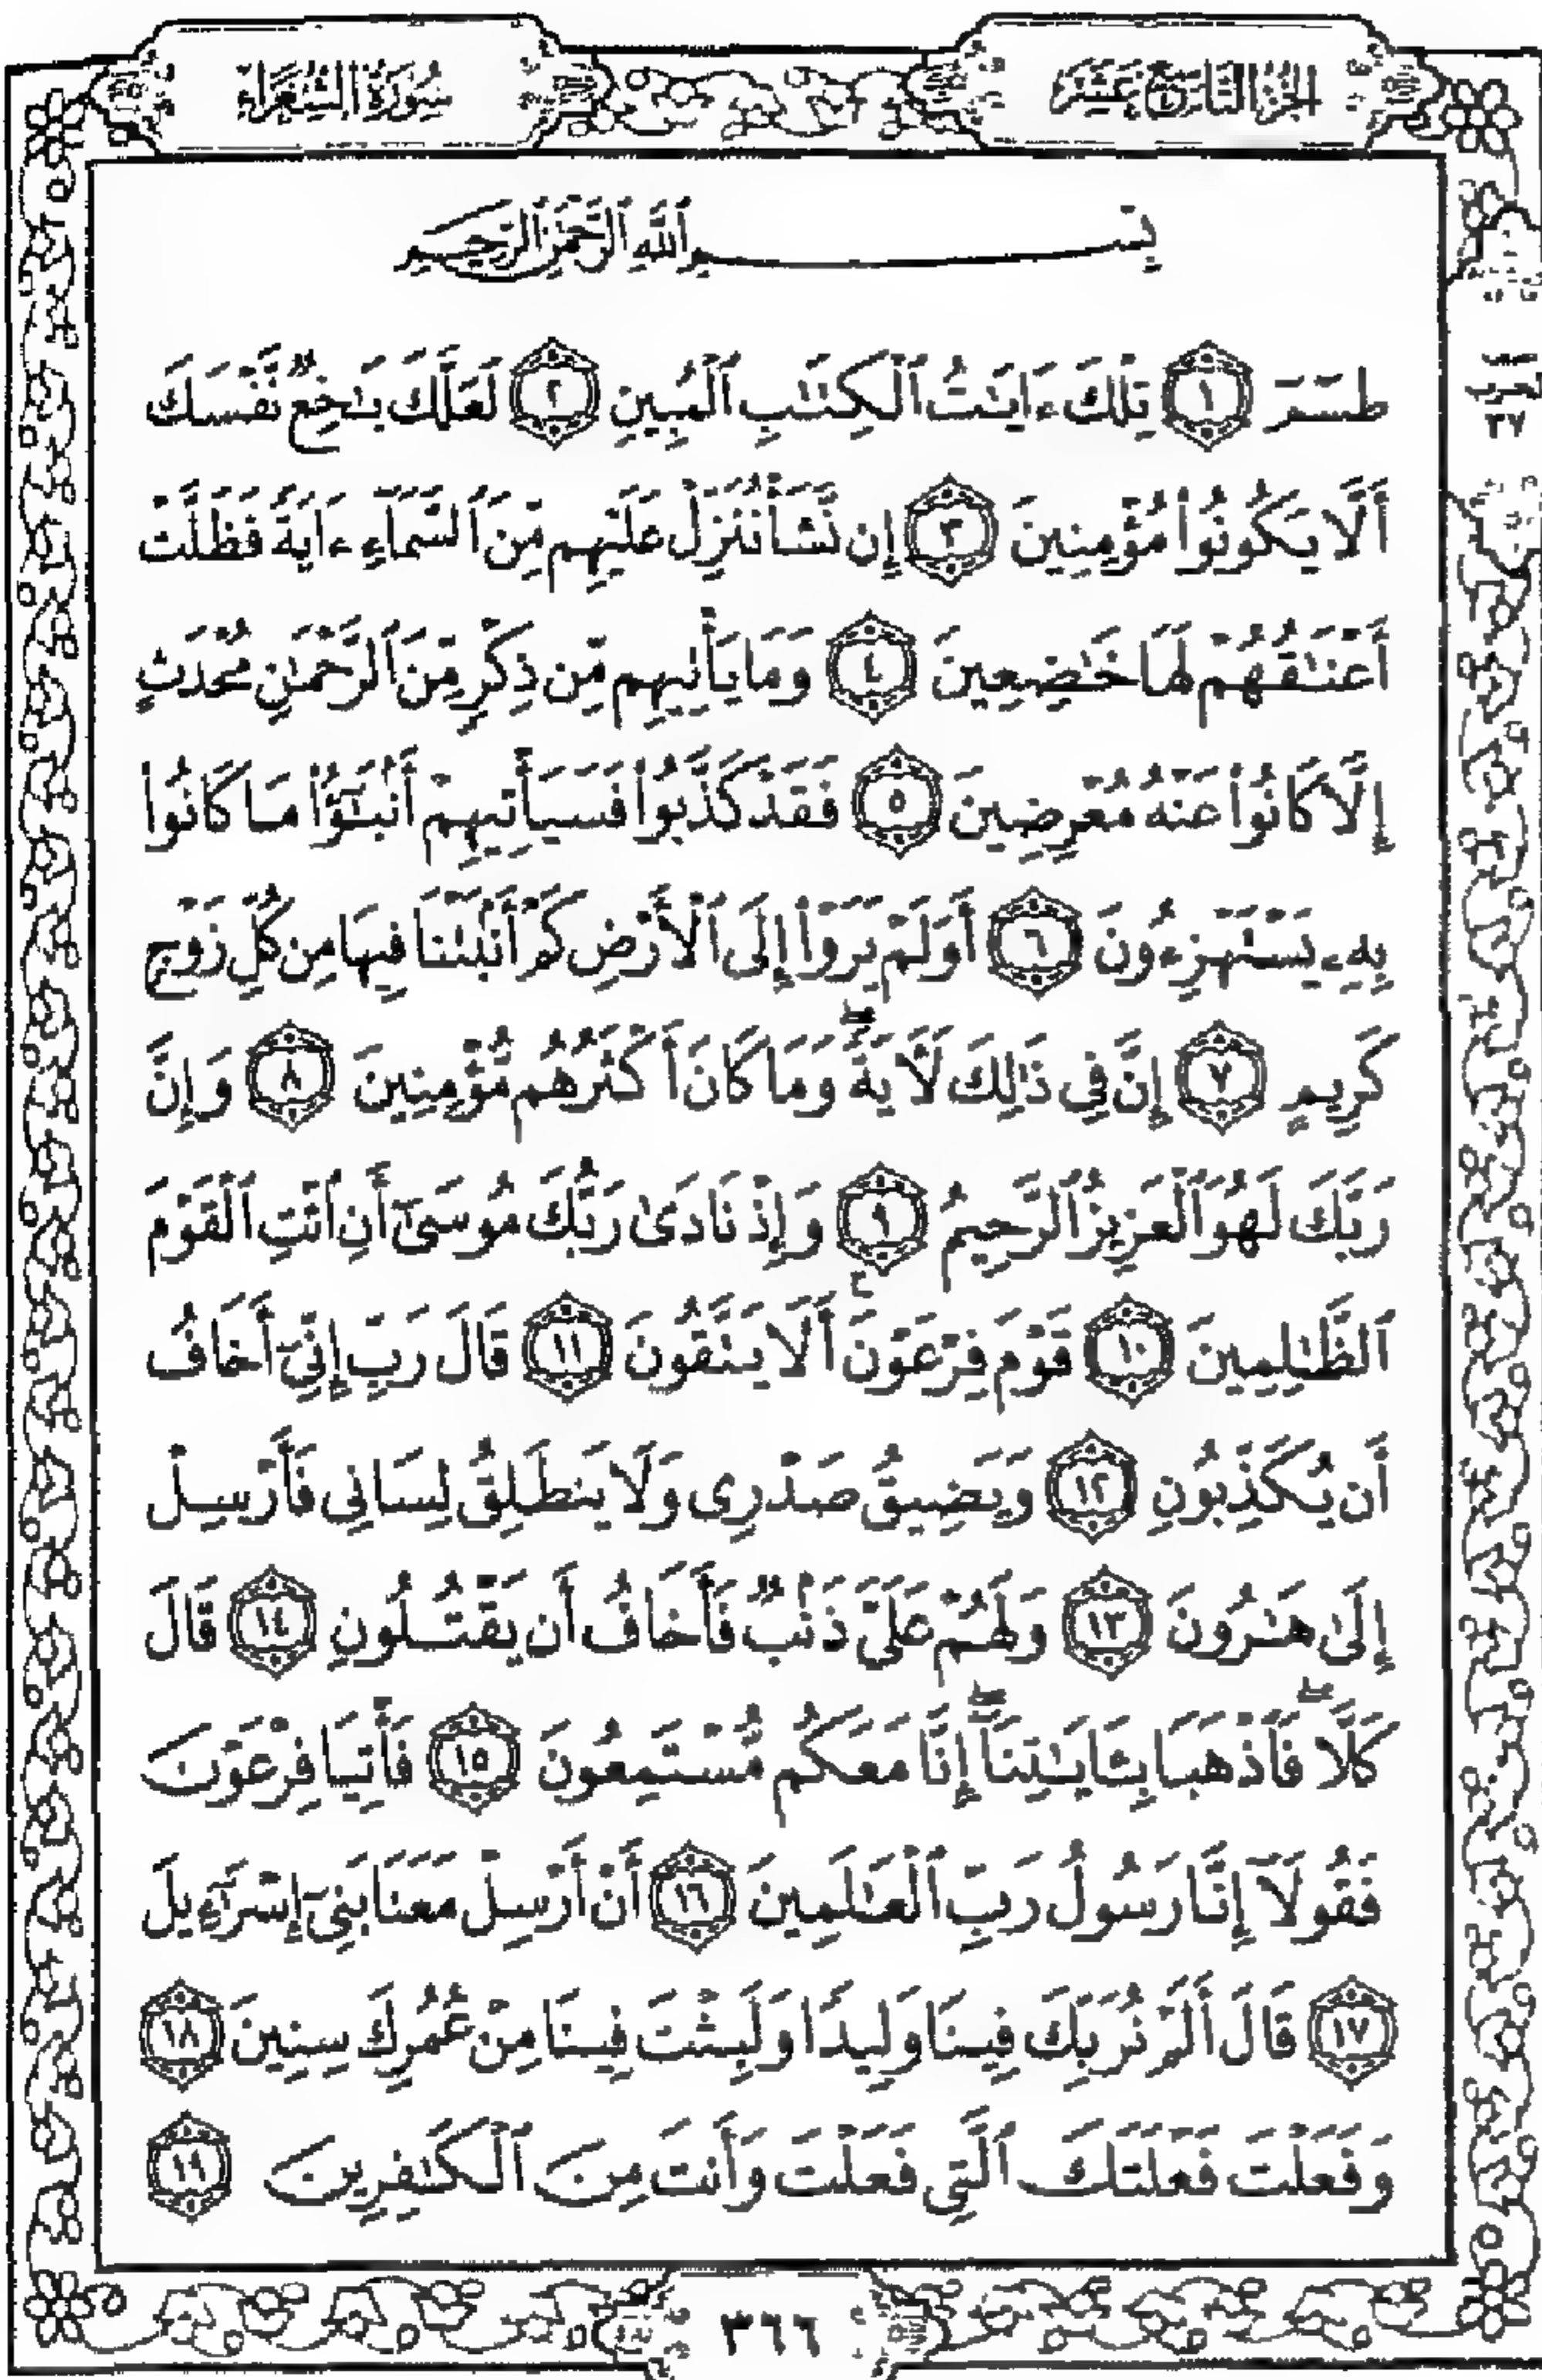 الجزء التاسع عشر
سورة الشعراء
بِسْمِ ٱللَّهِ ٱلرَّحْمَٰنِ ٱلرَّحِيمِ
طسٓمٓ ١ تِلْكَ ءَايَٰتُ ٱلْكِتَٰبِ ٱلْمُبِينِ ٢ لَعَلَّكَ بَٰخِعٌ نَّفْسَكَ
أَلَّا يَكُونُوا۟ مُؤْمِنِينَ ٣ إِن نَّشَأْ نُنَزِّلْ عَلَيْهِم مِّنَ ٱلسَّمَآءِ ءَايَةً فَظَلَّتْ
أَعْنَٰقُهُمْ لَهَا خَٰضِعِينَ ٤ وَمَا يَأْتِيهِم مِّن ذِكْرٍ مِّنَ ٱلرَّحْمَٰنِ مُحْدَثٍ
إِلَّا كَانُوا۟ عَنْهُ مُعْرِضِينَ ٥ فَقَدْ كَذَّبُوا۟ فَسَيَأْتِيهِمْ أَنۢبَٰٓؤُا۟ مَا كَانُوا۟
بِهِۦ يَسْتَهْزِءُونَ ٦ أَوَلَمْ يَرَوْا۟ إِلَى ٱلْأَرْضِ كَمْ أَنۢبَتْنَا فِيهَا مِن كُلِّ زَوْجٍ
كَرِيمٍ ٧ إِنَّ فِى ذَٰلِكَ لَءَايَةً ۖ وَمَا كَانَ أَكْثَرُهُم مُّؤْمِنِينَ ٨ وَإِنَّ
رَبَّكَ لَهُوَ ٱلْعَزِيزُ ٱلرَّحِيمُ ٩ وَإِذْ نَادَىٰ رَبُّكَ مُوسَىٰٓ أَنِ ٱئْتِ ٱلْقَوْمَ
ٱلظَّٰلِمِينَ ١٠ قَوْمَ فِرْعَوْنَ ۚ أَلَا يَتَّقُونَ ١١ قَالَ رَبِّ إِنِّىٓ أَخَافُ
أَن يُكَذِّبُونِ ١٢ وَيَضِيقُ صَدْرِى وَلَا يَنطَلِقُ لِسَانِى فَأَرْسِلْ
إِلَىٰ هَٰرُونَ ١٣ وَلَهُمْ عَلَىَّ ذَنۢبٌ فَأَخَافُ أَن يَقْتُلُونِ ١٤ قَالَ
كَلَّا ۖ فَٱذْهَبَا بِـَٔايَٰتِنَآ ۖ إِنَّا مَعَكُم مُّسْتَمِعُونَ ١٥ فَأْتِيَا فِرْعَوْنَ
فَقُولَآ إِنَّا رَسُولُ رَبِّ ٱلْعَٰلَمِينَ ١٦ أَنْ أَرْسِلْ مَعَنَا بَنِىٓ إِسْرَٰٓءِيلَ
١٧ قَالَ أَلَمْ نُرَبِّكَ فِينَا وَلِيدًا وَلَبِثْتَ فِينَا مِنْ عُمُرِكَ سِنِينَ ١٨
وَفَعَلْتَ فَعْلَتَكَ ٱلَّتِى فَعَلْتَ وَأَنتَ مِنَ ٱلْكَٰفِرِينَ ١٩
٣٦٦